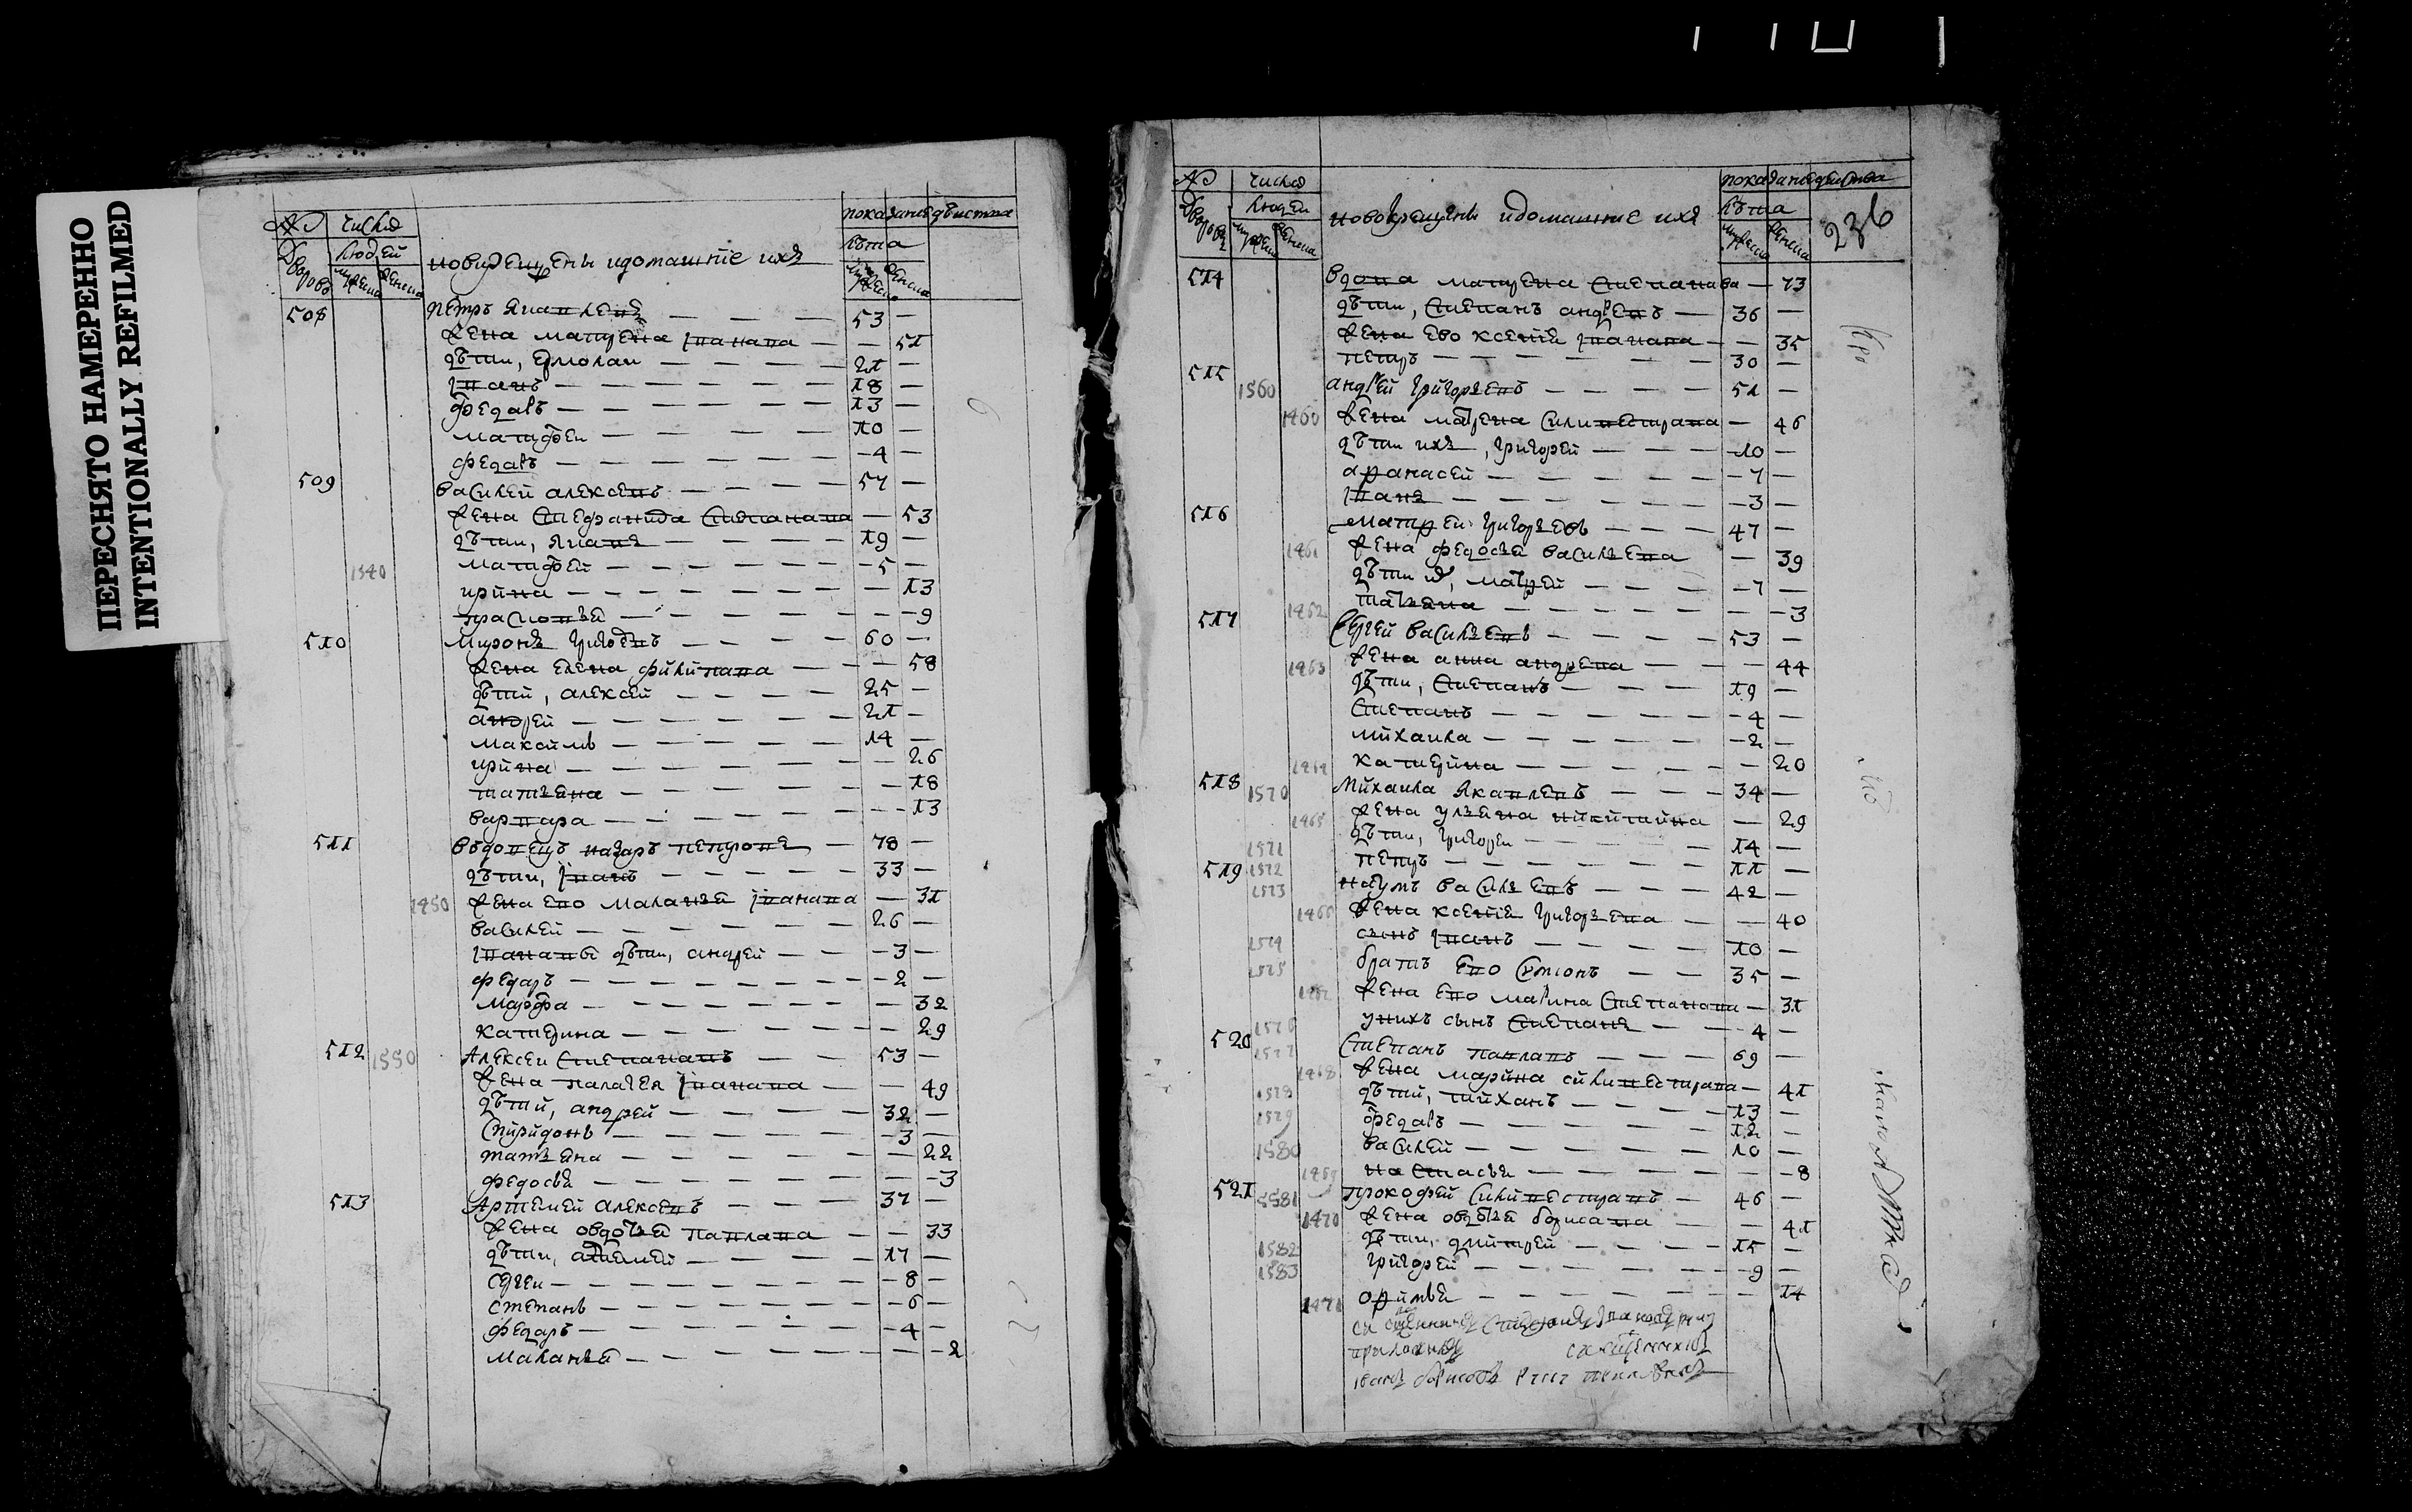 ПЕРЕСНЯТО НАМЕРЕННО
INTENTIONALLY REFILMED
№ число показание действа
дворовъ людей новокрещены и домашние ихъ лѣта
мужеска женска мужеска женска
508 петръ яковлевъ — 53 —
жена матрена іванава — — 51
дѣти, ермолаи — 21 —
іванъ — 18 —
федоръ — 13 —
матфеи — 10 —
федоръ — 4 —
509 василей алексеевъ — 57 —
жена стефанида степанава — 53
дѣти, — 19 —
1540 матфей — 5 —
ирина — 13
прасковья — 9
510 миронъ григоревъ — 60 —
жена елена филипава — — 58
дѣти, алексей — 25 —
андрей — 21 —
максимъ — 14 —
ирина — 26
татьяна — 18
варвара — 13
511 вдовецъ назаръ петровъ — 78 —
дѣти, іванъ — 33 —
1450 жена ево маланья іванава — 31
василей — 26 —
івановы дѣти, андрей — 3 —
федаръ — 2 —
марфа — 32
катерина — 29
512 1550 Алексеи степановъ — 53 —
жена палагея іванава — 49
дѣти, андрей — 32 —
спиридонъ — 3 —
татьяна — 22
федосья — 3
513 Артемей алексеевъ — 37 —
жена овдотья павлава — 33
дѣти, артемей — 17 —
сергеи — 8 —
степанъ — 6 —
федаръ — 4 —
маланья — 2
№ число показание действа
дворовъ людеи новокрещены и домашние ихъ лѣта 236
мужеска женска мужеска женска
514 вдова матрена степанава — 73
дѣти, степанъ андреевъ — 36 —
жена ево ксения іванава — 35
петръ — 30 —
515 1560 андрей григорьевъ — 51 —
1460 жена матрена силивестрава — 46
дѣти ихъ, григорей — 10 —
афанасей — 7 —
іванъ — 3 —
516 матфеи григорьевъ — 47 —
1461 жена федосья васильева — 39
дѣти их, матфей — 7 —
1462 татьяна — 3
517 сергей васильевъ — 53 —
1463 жена анна андреева — 44
дѣти, степанъ — 19 —
степанъ — 4 —
михаила — 2 —
1464 катерина — 20
518 1570 михаила яковлевъ — 34 —
1465 жена ульяна никитина — 29
1571 дѣти, григореи — 14 —
1572 петръ — 11 —
519 1573 наумъ васильевъ — 42 —
1466 жена ксения григорьева — 40
1574 сынъ іванъ — 10 —
1575 братъ ево симионъ — 35 —
жена ево марина степанава — 31
1576 у нихъ сынъ степанъ — 4 —
520 1577 степанъ павлавъ — 69 —
1468 жена марина силивестрава — 41
1578 дѣти, тиханъ — 13 —
1579 федаръ — 12 —
1580 василей — 10 —
1469 настасья — 8
521 1581 прокофей силивестравъ — 46 —
1470 жена овдотья борисава — 41
1582 дѣти, дмитрей — 15 —
1583 григорей — 9 —
1471 офимья — 14